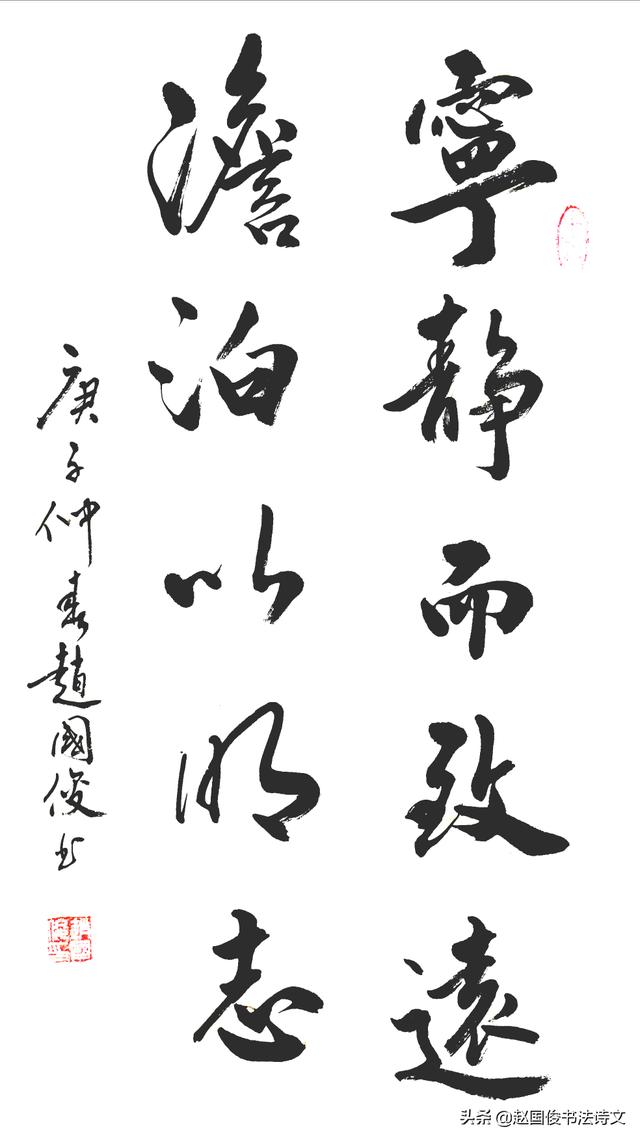 寧靜而致遠
澹泊以明志
庚子仲春趙國俊书
头条 @赵国俊书法诗文